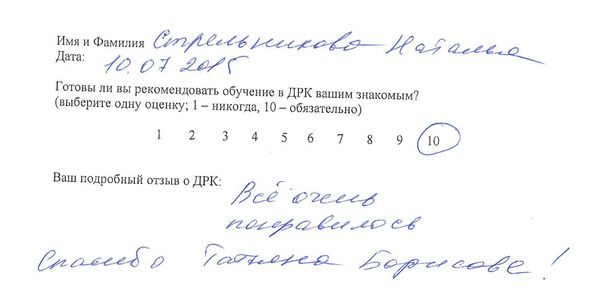 Имя и Фамилия Стрельникова Наталья
Дата: 10.07 2015
Готовы ли вы рекомендовать обучение в ДРК вашим знакомым?
(выберите одну оценку; 1 – никогда, 10 – обязательно)
1 2 3 4 5 6 7 8 9 10
Ваш подробный отзыв о ДРК:
Всё очень
понравилось
Спасибо Татьяна Борисове!